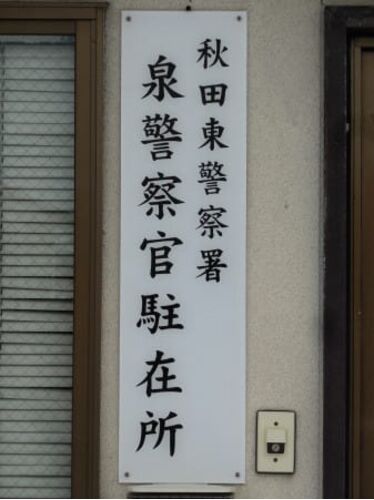 秋田東警察署
泉警察官駐在所